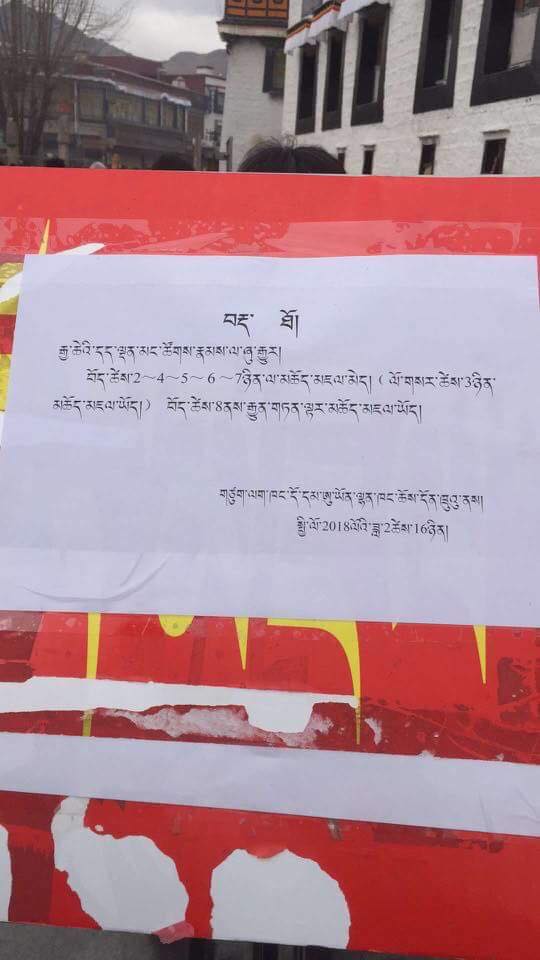 བརྡ་ ཐོ།
རྒྱ་ཆེའི་དད་ལྡན་མང་ཚོགས་རྣམས་ལ་ཞུ་རྒྱུར།
བོད་ཚེས་2～4～5～6～7ཉིན་ལ་མཆོད་མཇལ་མེད། ( ལོ་གསར་ཚེས་3ཉིན་
མཆོད་མཇལ་ཡོད། ) བོད་ཚེས་8ནས་རྒྱུན་གཏན་ལྟར་མཆོད་མཇལ་ཡོད།
གཙུག་ལག་ཁང་དོ་དམ་ཨུ་ཡོན་ལྷན་ཁང་ཆོས་དོན་ཁྲུའུ་ནས།
སྤྱི་ལོ་2018ལོའི་ཟླ་2ཚེས་16ཉིན།